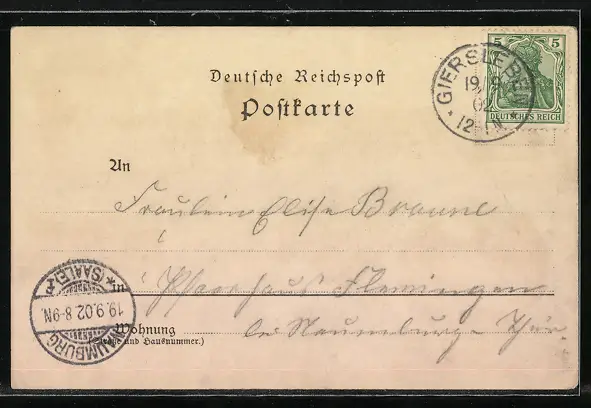 Deutsche Reichspost
Postkarte
5 5
DEUTSCHES REICH
GIERSLEBEN
19.9.
02
12-1N.
An
Fräulein Elise Braune
in Pfarrhaus Flemingen
Wohnung
(Straße und Hausnummer.)
bei Naumburg Thür.
NAUMBURG
19.9.02.8-9N.
*(SAALE)*